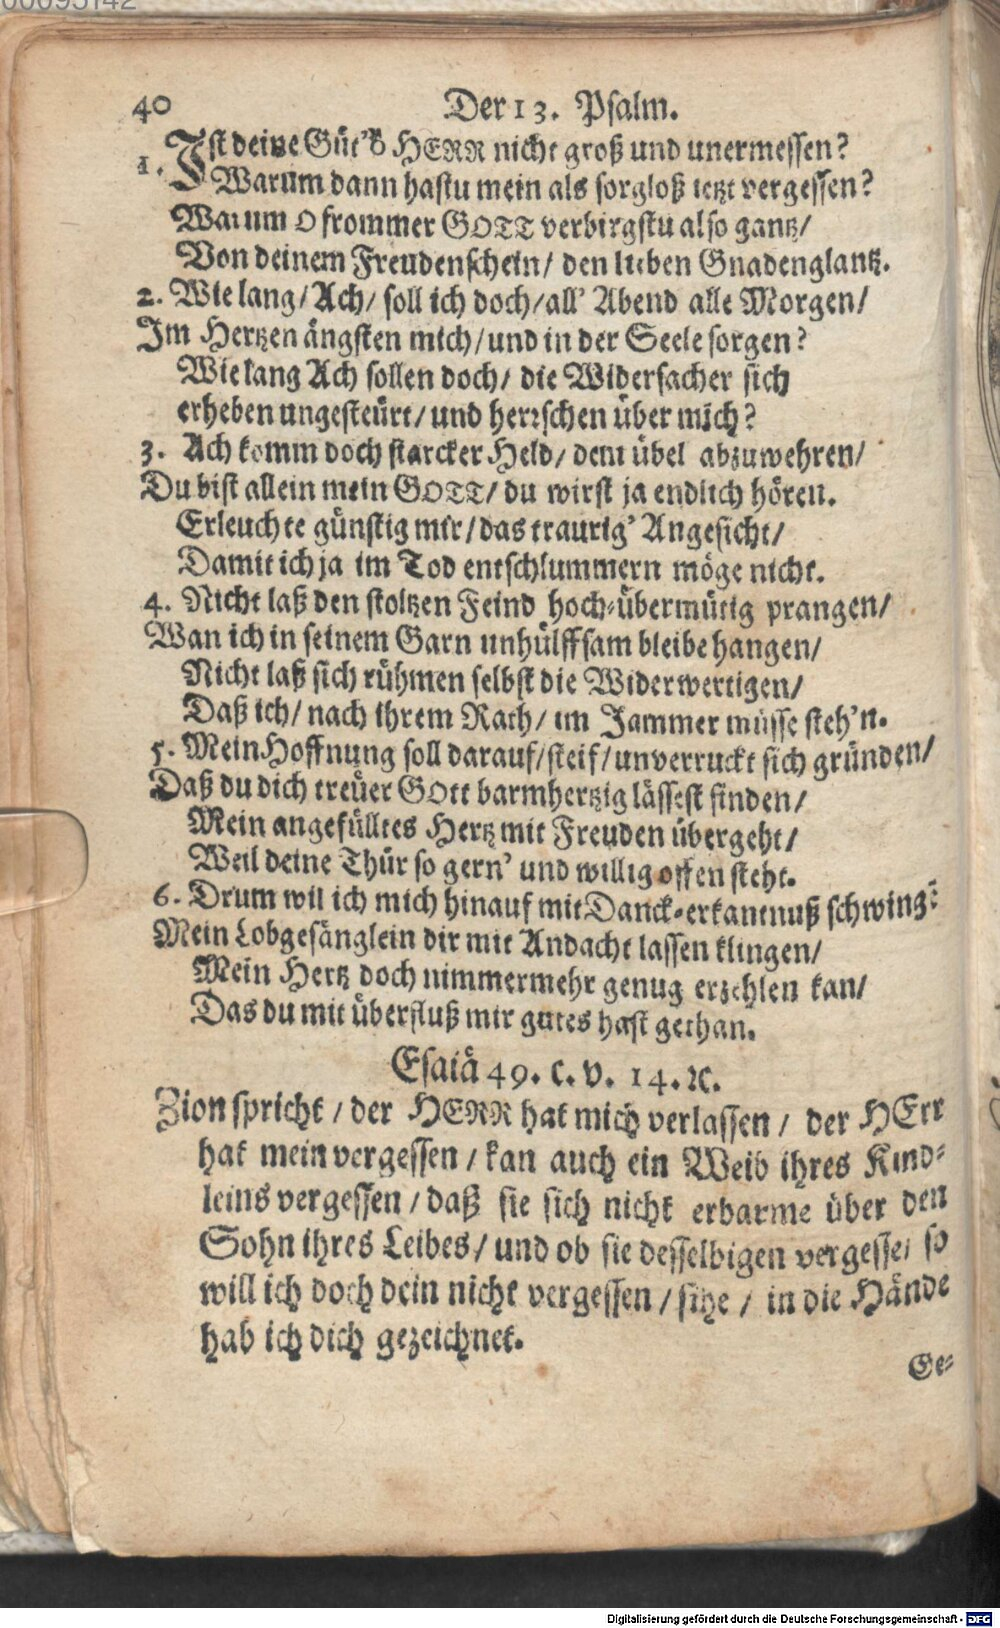 00095142
40 Der 13. Psalm.
1. Ist deine Güt' ô HERR nicht groß und unermessen?
Warum dann hastu mein als sorgloß ietzt vergessen?
Warum O frommer GOTT verbirgstu also gantz/
Von deinem Freudenschein/ den lieben Gnadenglantz.
2. Wie lang/ Ach/ soll ich doch/ all' Abend alle Morgen/
Im Hertzen ängsten mich/ und in der Seele sorgen?
Wie lang Ach sollen doch/ die Widersacher sich
erheben ungesteürt/ und herrschen über mich?
3. Ach komm doch starcker Held/ dem übel abzuwehren/
Du bist allein mein GOTT/ du wirst ja endlich hören.
Erleuchte günstig mir/ das traurig' Angesicht/
Damit ich ja im Tod entschlummern möge nicht.
4. Nicht laß den stoltzen Feind hoch-übermütig prangen/
Wan ich in seinem Garn unhülffsam bleibe hangen/
Nicht laß sich rühmen selbst die Widerwertigen/
Daß ich/ nach ihrem Rath/ im Jammer müsse steh'n.
5. Mein Hoffnung soll darauf/ steif/ unverruckt sich gründen/
Daß du dich treüer GOtt barmhertzig lässest finden/
Mein angefülltes Hertz mit Freuden übergeht/
Weil deine Thür so gern' und willig offen steht.
6. Drum wil ich mich hinauf mit Danck-erkantnuß schwing:
Mein Lobgesänglein dir mit Andacht lassen klingen/
Mein Hertz doch nimmermehr genug erzehlen kan/
Das du mit überfluß mir gutes hast gethan.
Esaiä 49. c. v. 14. ꝛc.
Zion spricht/ der HERR hat mich verlassen/ der HErr
hat mein vergessen/ kan auch ein Weib ihres Kind-
leins vergessen/ daß sie sich nicht erbarme über den
Sohn ihres Leibes/ und ob sie desselbigen vergesse/ so
will ich doch dein nicht vergessen/ sihe/ in die Hände
hab ich dich gezeichnet.
Ge-
Digitalisierung gefördert durch die Deutsche Forschungsgemeinschaft - DFG